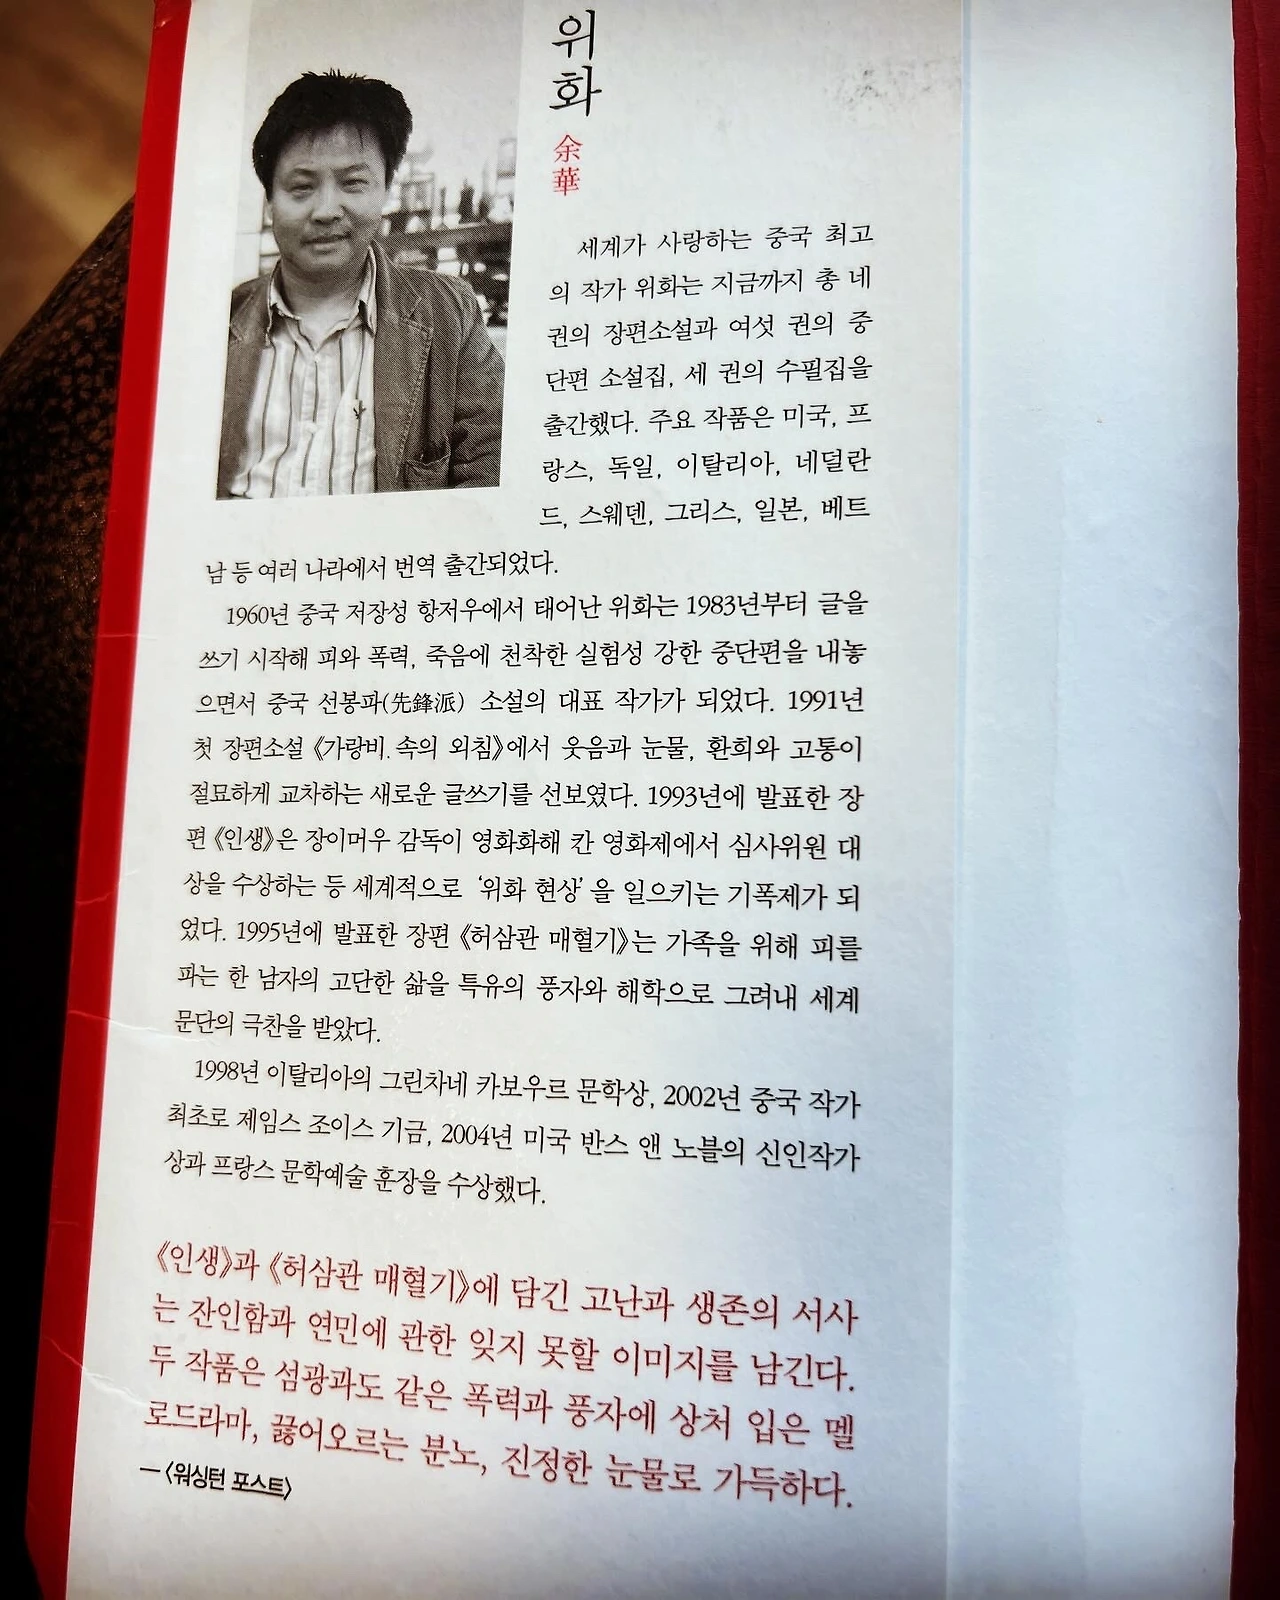 위화
余華
세계가 사랑하는 중국 최고
의 작가 위화는 지금까지 총 네
권의 장편소설과 여섯 권의 중
단편 소설집, 세 권의 수필집을
출간했다. 주요 작품은 미국, 프
랑스, 독일, 이탈리아, 네덜란
드, 스웨덴, 그리스, 일본, 베트
남 등 여러 나라에서 번역 출간되었다.
1960년 중국 저장성 항저우에서 태어난 위화는 1983년부터 글을
쓰기 시작해 피와 폭력, 죽음에 천착한 실험성 강한 중단편을 내놓
으면서 중국 선봉파(先鋒派) 소설의 대표 작가가 되었다. 1991년
첫 장편소설 《가랑비 속의 외침》에서 웃음과 눈물, 환희와 고통이
절묘하게 교차하는 새로운 글쓰기를 선보였다. 1993년에 발표한 장
편 《인생》은 장이머우 감독이 영화화해 칸 영화제에서 심사위원 대
상을 수상하는 등 세계적으로 ‘위화 현상’을 일으키는 기폭제가 되
었다. 1995년에 발표한 장편 《허삼관 매혈기》는 가족을 위해 피를
파는 한 남자의 고단한 삶을 특유의 풍자와 해학으로 그려내 세계
문단의 극찬을 받았다.
1998년 이탈리아의 그린차네 카보우르 문학상, 2002년 중국 작가
최초로 제임스 조이스 기금, 2004년 미국 반스 앤 노블의 신인작가
상과 프랑스 문학예술 훈장을 수상했다.
《인생》과 《허삼관 매혈기》에 담긴 고난과 생존의 서사
는 잔인함과 연민에 관한 잊지 못할 이미지를 남긴다.
두 작품은 섬광과도 같은 폭력과 풍자에 상처 입은 멜
로드라마, 끓어오르는 분노, 진정한 눈물로 가득하다.
—〈워싱턴 포스트〉